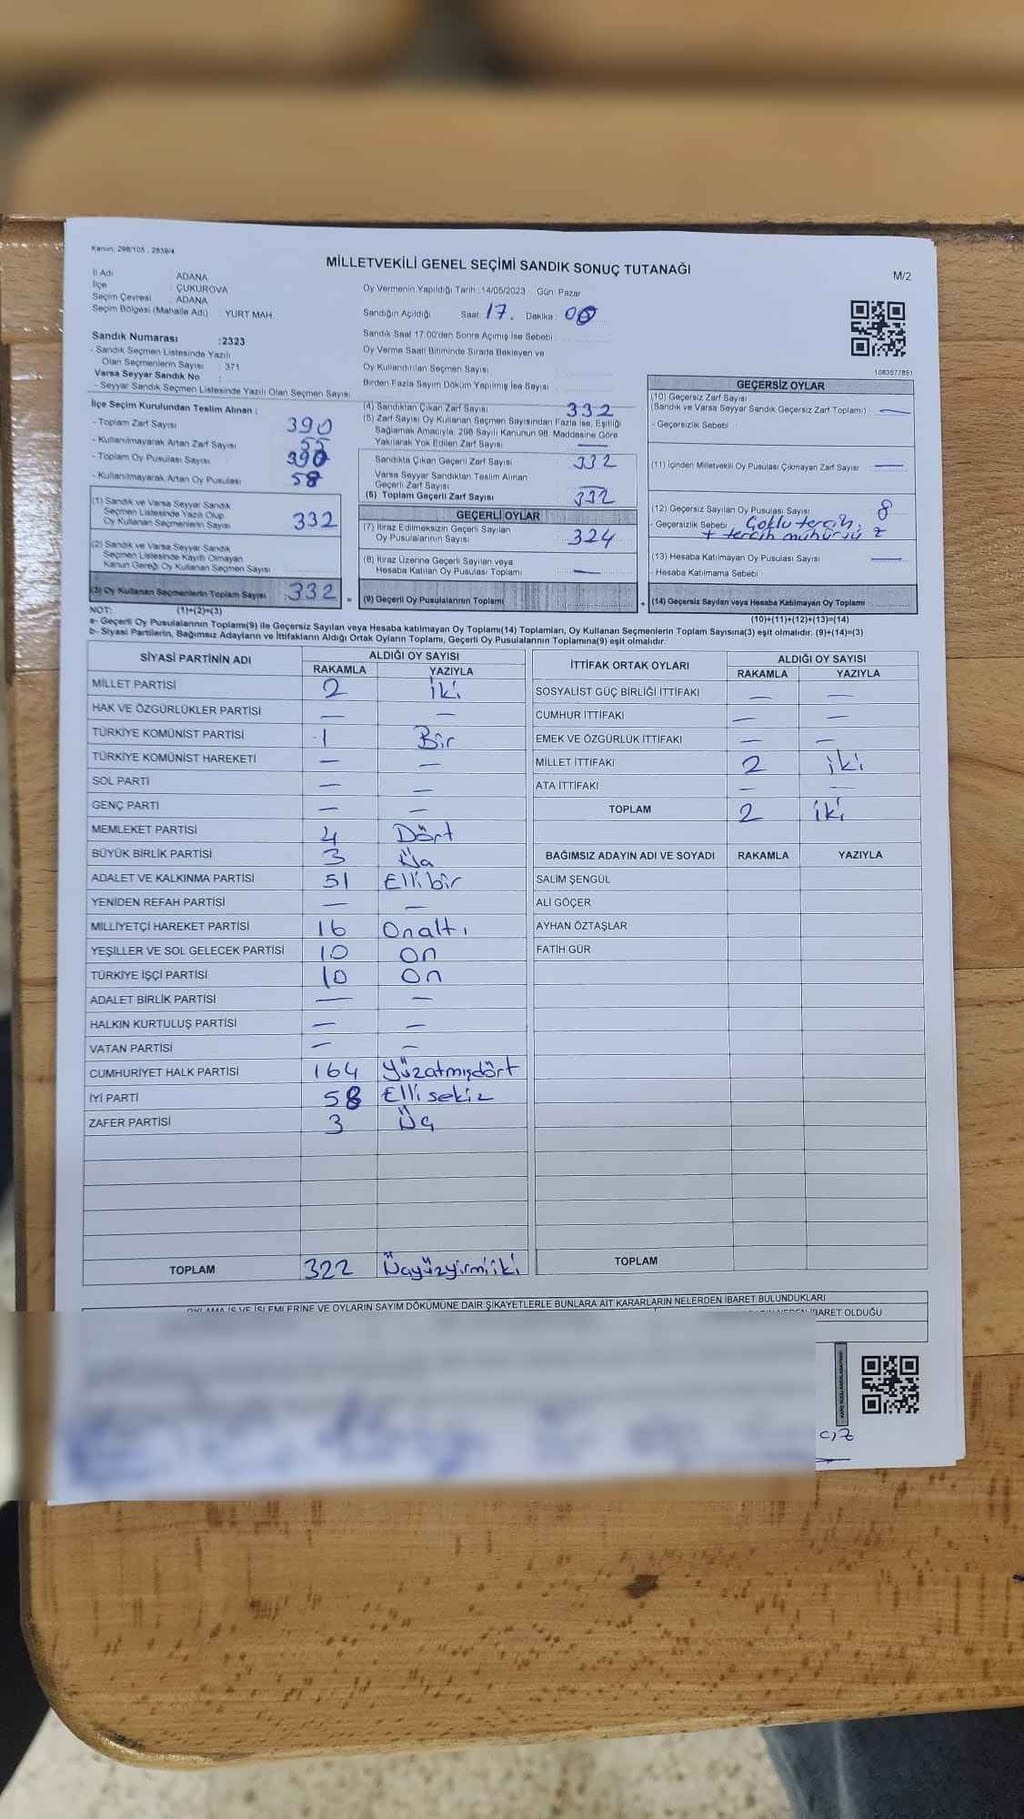 Kanun; 298/105 , 2839/4
MİLLETVEKİLİ GENEL SEÇİMİ SANDIK SONUÇ TUTANAĞI
M/2
İl Adı : ADANA
İlçe : ÇUKUROVA
Seçim Çevresi : ADANA
Seçim Bölgesi (Mahalle Adı) : YURT MAH.
Oy Vermenin Yapıldığı Tarih : 14/05/2023 Gün: Pazar
Sandığın Açıldığı Saat 17. Dakika : 00
Sandık Saat 17:00'den Sonra Açılmış İse Sebebi :
Oy Verme Saati Bitiminde Sırada Bekleyen ve
Oy Kullandırılan Seçmen Sayısı
Birden Fazla Sayım Döküm Yapılmış İse Sayısı
1083577851
Sandık Numarası :2323
- Sandık Seçmen Listesinde Yazılı
Olan Seçmenlerin Sayısı : 371
Varsa Seyyar Sandık No :
- Seyyar Sandık Seçmen Listesinde Yazılı Olan Seçmen Sayısı
İlçe Seçim Kurulundan Teslim Alınan ;
- Toplam Zarf Sayısı 390
- Kullanılmayarak Artan Zarf Sayısı
- Toplam Oy Pusulası Sayısı 390
- Kullanılmayarak Artan Oy Pusulası 58
(1) Sandık ve Varsa Seyyar Sandık
Seçmen Listesinde Yazılı Olup
Oy Kullanan Seçmenlerin Sayısı 332
(2) Sandık ve Varsa Seyyar Sandık
Seçmen Listesinde Kayıtlı Olmayan
Kanun Gereği Oy Kullanan Seçmen Sayısı
(3) Oy Kullanan Seçmenlerin Toplam Sayısı 332 =
(4) Sandıktan Çıkan Zarf Sayısı 332
(5) Zarf Sayısı Oy Kullanan Seçmen Sayısından Fazla İse, Eşitliği
Sağlamak Amacıyla, 298 Sayılı Kanunun 98. Maddesine Göre
Yakılarak Yok Edilen Zarf Sayısı —
Sandıkta Çıkan Geçerli Zarf Sayısı 332
Varsa Seyyar Sandıktan Teslim Alınan
Geçerli Zarf Sayısı —
(6) Toplam Geçerli Zarf Sayısı 332
GEÇERLİ OYLAR
(7) İtiraz Edilmeksizin Geçerli Sayılan
Oy Pusulalarının Sayısı 324
(8) İtiraz Üzerine Geçerli Sayılan veya
Hesaba Katılan Oy Pusulası Toplamı —
(9) Geçerli Oy Pusulalarının Toplamı +
GEÇERSİZ OYLAR
(10) Geçersiz Zarf Sayısı
(Sandık ve Varsa Seyyar Sandık Geçersiz Zarf Toplamı) —
- Geçersizlik Sebebi
(11) İçinden Milletvekili Oy Pusulası Çıkmayan Zarf Sayısı —
(12) Geçersiz Sayılan Oy Pusulası Sayısı 8
- Geçersizlik Sebebi Çoklu tercih,
+ tercih mühürsüz
(13) Hesaba Katılmayan Oy Pusulası Sayısı —
- Hesaba Katılmama Sebebi
(14) Geçersiz Sayılan veya Hesaba Katılmayan Oy Toplamı
NOT: (1)+(2)=(3)
(10)+(11)+(12)+(13)=(14)
a- Geçerli Oy Pusulaları Toplamı(9) ile Geçersiz Sayılan veya Hesaba katılmayan Oy Toplamı(14) Toplamları, Oy Kullanan Seçmenlerin Toplam Sayısına(3) eşit olmalıdır. (9)+(14)=(3)
b- Siyasi Partilerin, Bağımsız Adayların ve İttifakların Aldığı Ortak Oyların Toplamı, Geçerli Oy Pusulalarının Toplamına(9) eşit olmalıdır.
SİYASİ PARTİNİN ADI ALDIĞI OY SAYISI
RAKAMLA YAZIYLA
MİLLET PARTİSİ 2 iki
HAK VE ÖZGÜRLÜKLER PARTİSİ — —
TÜRKİYE KOMÜNİST PARTİSİ 1 Bir
TÜRKİYE KOMÜNİST HAREKETİ — —
SOL PARTİ — —
GENÇ PARTİ — —
MEMLEKET PARTİSİ 4 Dört
BÜYÜK BİRLİK PARTİSİ 3 Üç
ADALET VE KALKINMA PARTİSİ 51 Elli bir
YENİDEN REFAH PARTİSİ — —
MİLLİYETÇİ HAREKET PARTİSİ 16 Onaltı
YEŞİLLER VE SOL GELECEK PARTİSİ 10 On
TÜRKİYE İŞÇİ PARTİSİ 10 On
ADALET BİRLİK PARTİSİ — —
HALKIN KURTULUŞ PARTİSİ — —
VATAN PARTİSİ — —
CUMHURİYET HALK PARTİSİ 164 Yüzatmışdört
İYİ PARTİ 58 Elli sekiz
ZAFER PARTİSİ 3 Üç
TOPLAM 322 Üçyüzyirmiiki
İTTİFAK ORTAK OYLARI ALDIĞI OY SAYISI
RAKAMLA YAZIYLA
SOSYALİST GÜÇ BİRLİĞİ İTTİFAKI — —
CUMHUR İTTİFAKI — —
EMEK VE ÖZGÜRLÜK İTTİFAKI — —
MİLLET İTTİFAKI 2 iki
ATA İTTİFAKI — —
TOPLAM 2 iki
BAĞIMSIZ ADAYIN ADI VE SOYADI RAKAMLA YAZIYLA
SALİM ŞENGÜL
ALİ GÖÇER
AYHAN ÖZTAŞLAR
FATİH GÜR
TOPLAM
İŞ VE İŞLEMLERİNE VE OYLARIN SAYIM DÖKÜMÜNE DAİR ŞİKAYETLERLE BUNLARA AİT KARARLARIN NELERDEN İBARET BULUNDUKLARI
İBARET OLDUĞU